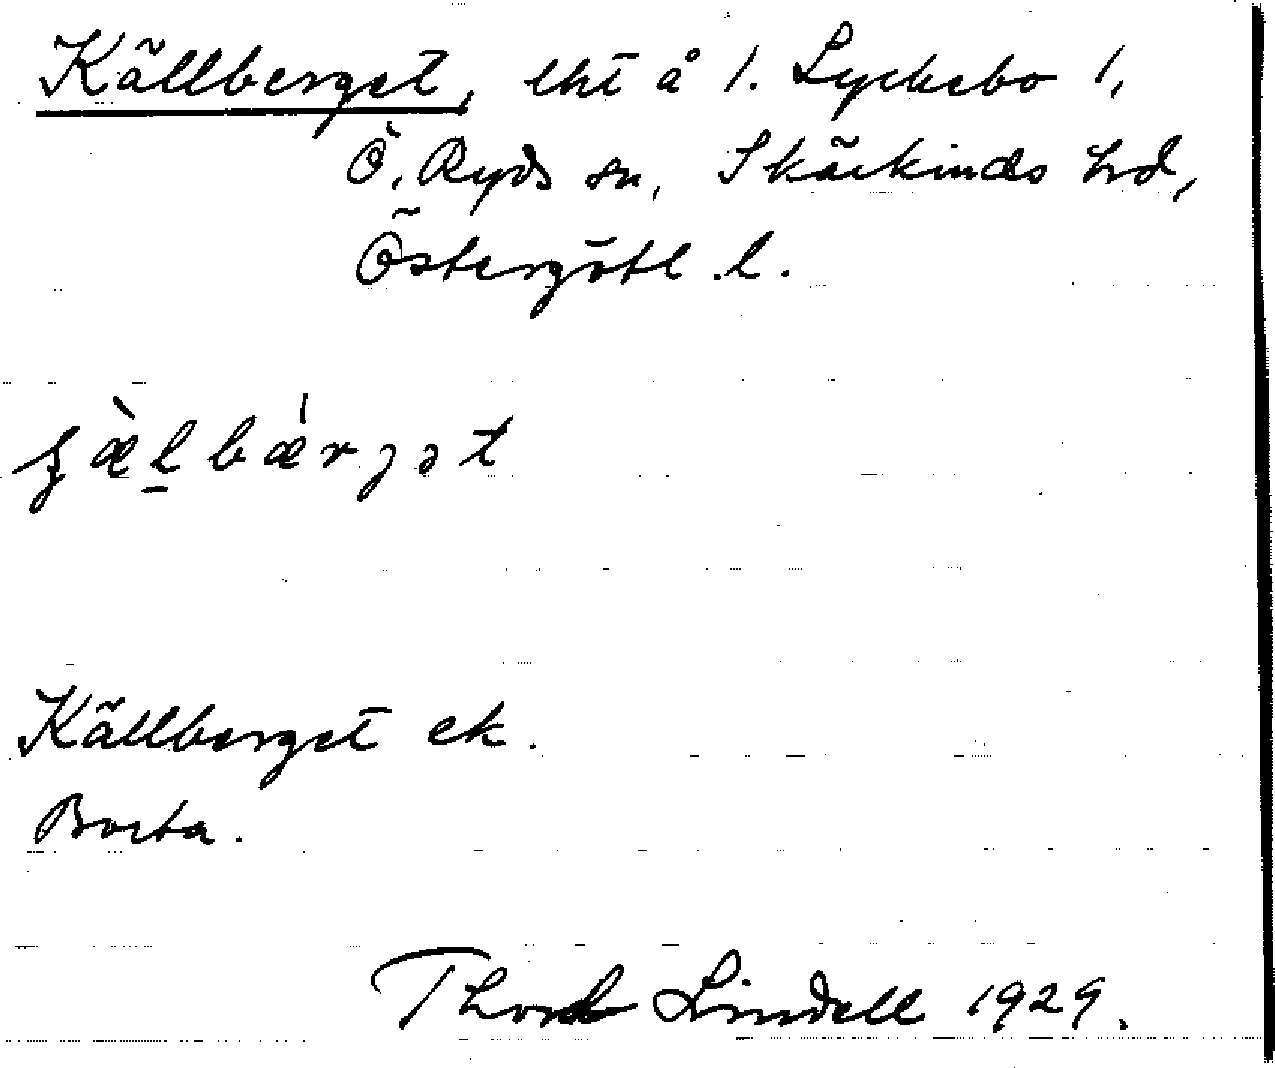 Källberget, lht å 1. Lyckebo 1,
Ö. Ryds sn, Skärkinds hd,
Östergötl. l.
Källberget ek.
Borta.
Thord Lindell 1929.